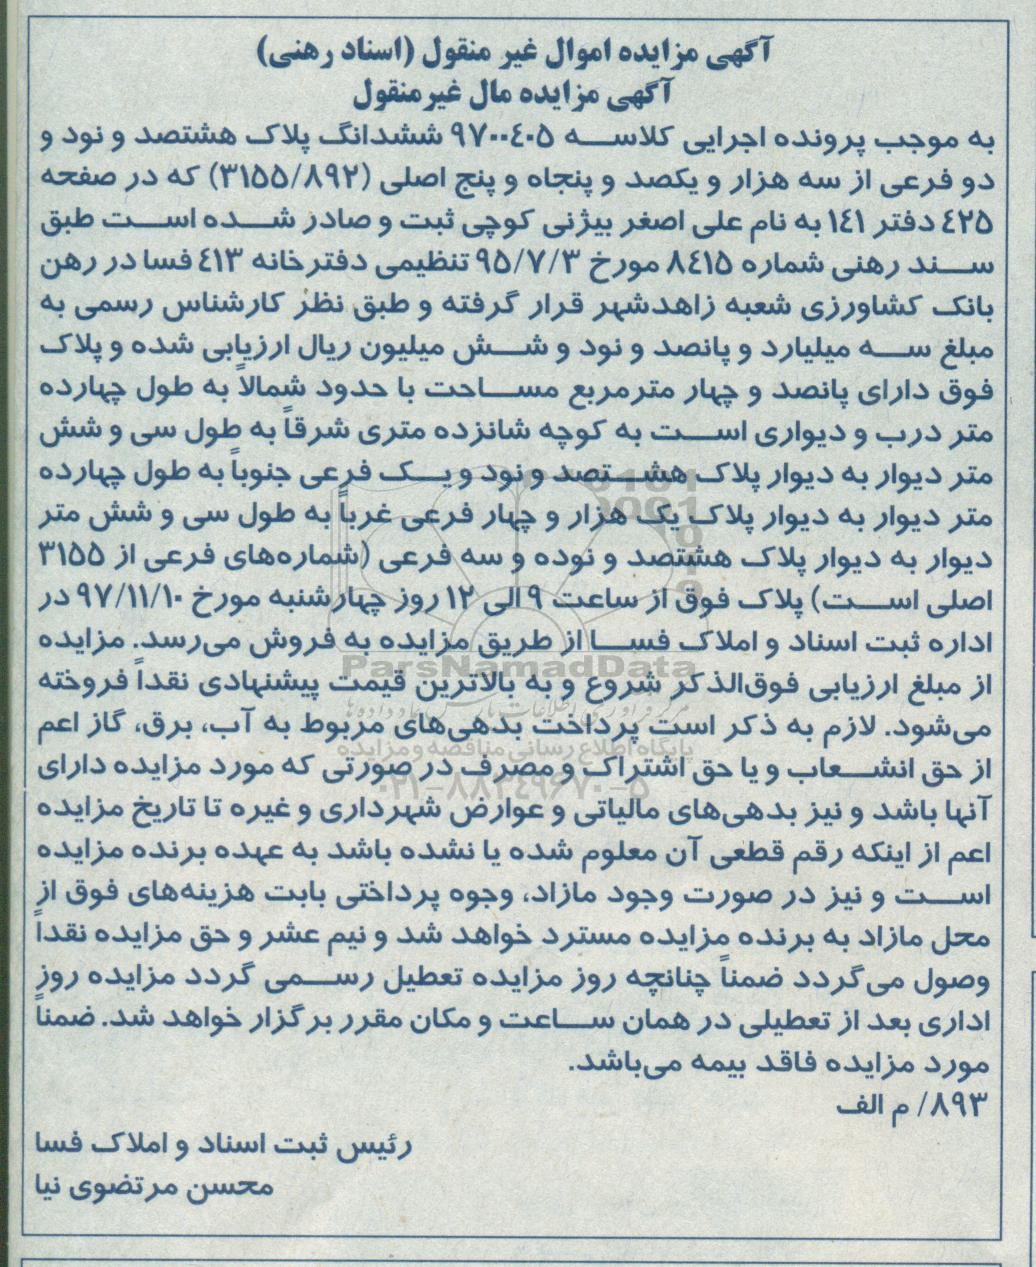 آگهی مزایده اموال غیر منقول (اسناد رهنی)
آگهی مزایده مال غیرمنقول
به موجب پرونده اجرایی کلاسه ۹۷۰۰۴۰۵ ششدانگ پلاک هشتصد و نود و
دو فرعی از سه هزار و یکصد و پنجاه و پنج اصلی (۳۱۵۵/۸۹۲) که در صفحه
۴۲۵ دفتر ۱۴۱ به نام علی اصغر بیژنی کوچی ثبت و صادر شده است طبق
سند رهنی شماره ۸۴۱۵ مورخ ۹۵/۷/۳ تنظیمی دفترخانه ۴۱۳ فسا در رهن
بانک کشاورزی شعبه زاهدشهر قرار گرفته و طبق نظر کارشناس رسمی به
مبلغ سه میلیارد و پانصد و نود و شش میلیون ریال ارزیابی شده و پلاک
فوق دارای پانصد و چهار مترمربع مساحت با حدود شمالاً به طول چهارده
متر درب و دیواری است به کوچه شانزده متری شرقاً به طول سی و شش
متر دیوار به دیوار پلاک هشتصد و نود و یک فرعی جنوباً به طول چهارده
متر دیوار به دیوار پلاک یک هزار و چهار فرعی غرباً به طول سی و شش متر
دیوار به دیوار پلاک هشتصد و نوده و سه فرعی (شماره‌های فرعی از ۳۱۵۵
اصلی است) پلاک فوق از ساعت ۹ الی ۱۲ روز چهارشنبه مورخ ۹۷/۱۱/۱۰ در
اداره ثبت اسناد و املاک فسا از طریق مزایده به فروش می‌رسد. مزایده
از مبلغ ارزیابی فوق‌الذکر شروع و به بالاترین قیمت پیشنهادی نقداً فروخته
می‌شود. لازم به ذکر است پرداخت بدهی‌های مربوط به آب، برق، گاز اعم
از حق انشعاب و یا حق اشتراک و مصرف در صورتی که مورد مزایده دارای
آنها باشد و نیز بدهی‌های مالیاتی و عوارض شهرداری و غیره تا تاریخ مزایده
اعم از اینکه رقم قطعی آن معلوم شده یا نشده باشد به عهده برنده مزایده
است و نیز در صورت وجود مازاد، وجوه پرداختی بابت هزینه‌های فوق از
محل مازاد به برنده مزایده مسترد خواهد شد و نیم عشر و حق مزایده نقداً
وصول می‌گردد ضمناً چنانچه روز مزایده تعطیل رسمی گردد مزایده روز
اداری بعد از تعطیلی در همان ساعت و مکان مقرر برگزار خواهد شد. ضمناً
مورد مزایده فاقد بیمه می‌باشد.
۸۹۳/ م الف
رئیس ثبت اسناد و املاک فسا
محسن مرتضوی نیا
ParsNamadData
پایگاه اطلاع رسانی مناقصه و مزایده
۰۲۱-۸۸۳۴۹۶۷۰-۵